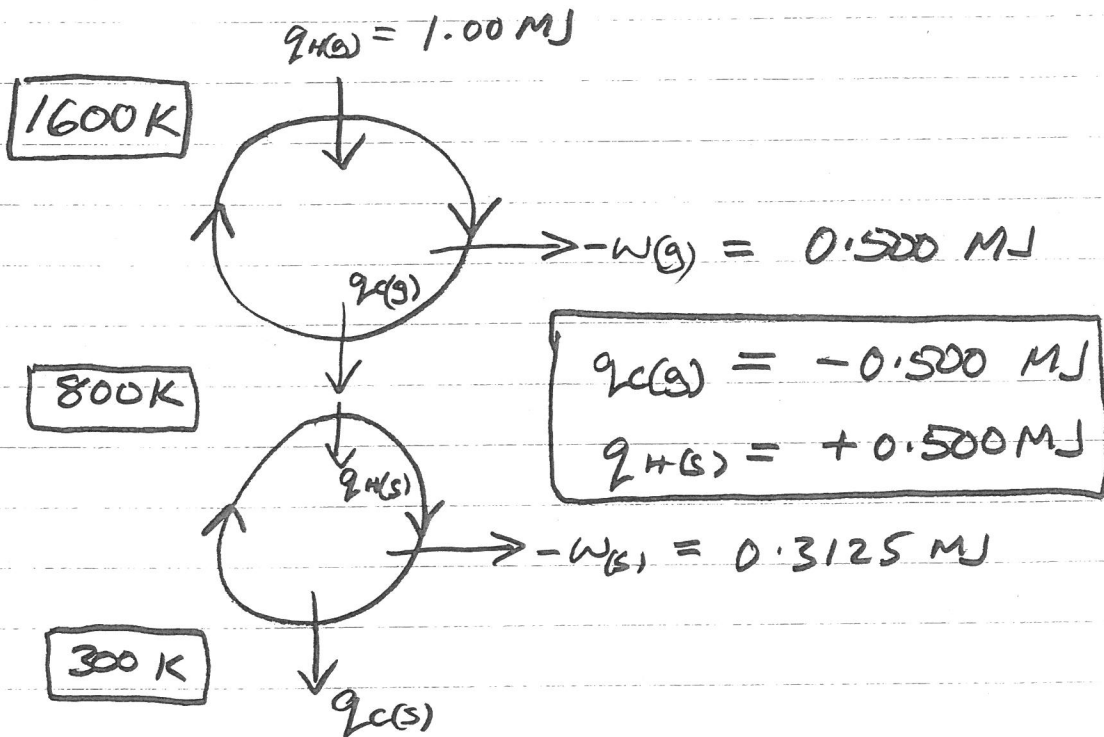 qH(g) = 1.00 MJ
1600 K
-w(g) = 0.500 MJ
qc(g)
qc(g) = -0.500 MJ
800 K
qH(s) = +0.500 MJ
qH(s)
-w(s) = 0.3125 MJ
300 K
qc(s)